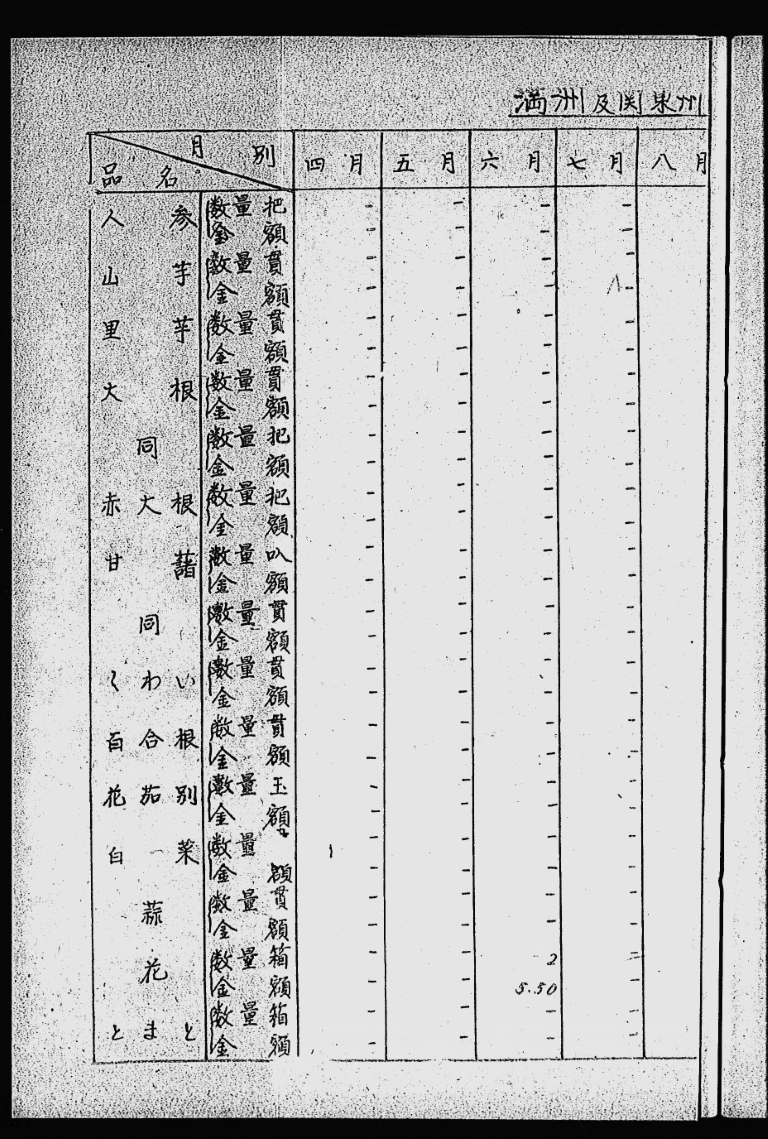 満洲及関東州
月別 品名 四月 五月 六月 七月 八月
人参 数量 把 - - - -
金額 - - - -
山芋 数量 貫 - - - -
金額 - - - -
里芋 数量 貫 - - - -
金額 - - - -
大根 数量 貫 - - - -
金額 - - - -
同 数量 把 - - - -
金額 - - - -
赤大根 数量 把 - - - -
金額 - - - -
甘藷 数量 叺 - - - -
金額 - - - -
同 数量 貫 - - - -
金額 - - - -
くわい 数量 貫 - - - -
金額 - - - -
百合根 数量 貫 - - - -
金額 - - - -
花茄別 数量 玉 - - - -
金額 - - - -
白菜 数量 - - - -
金額 - - - -
蒜 数量 貫 - - - -
金額 - - - -
花 数量 箱 - - 2 -
金額 - - 5.50 -
とまと 数量 箱 - - - -
金額 - - - -